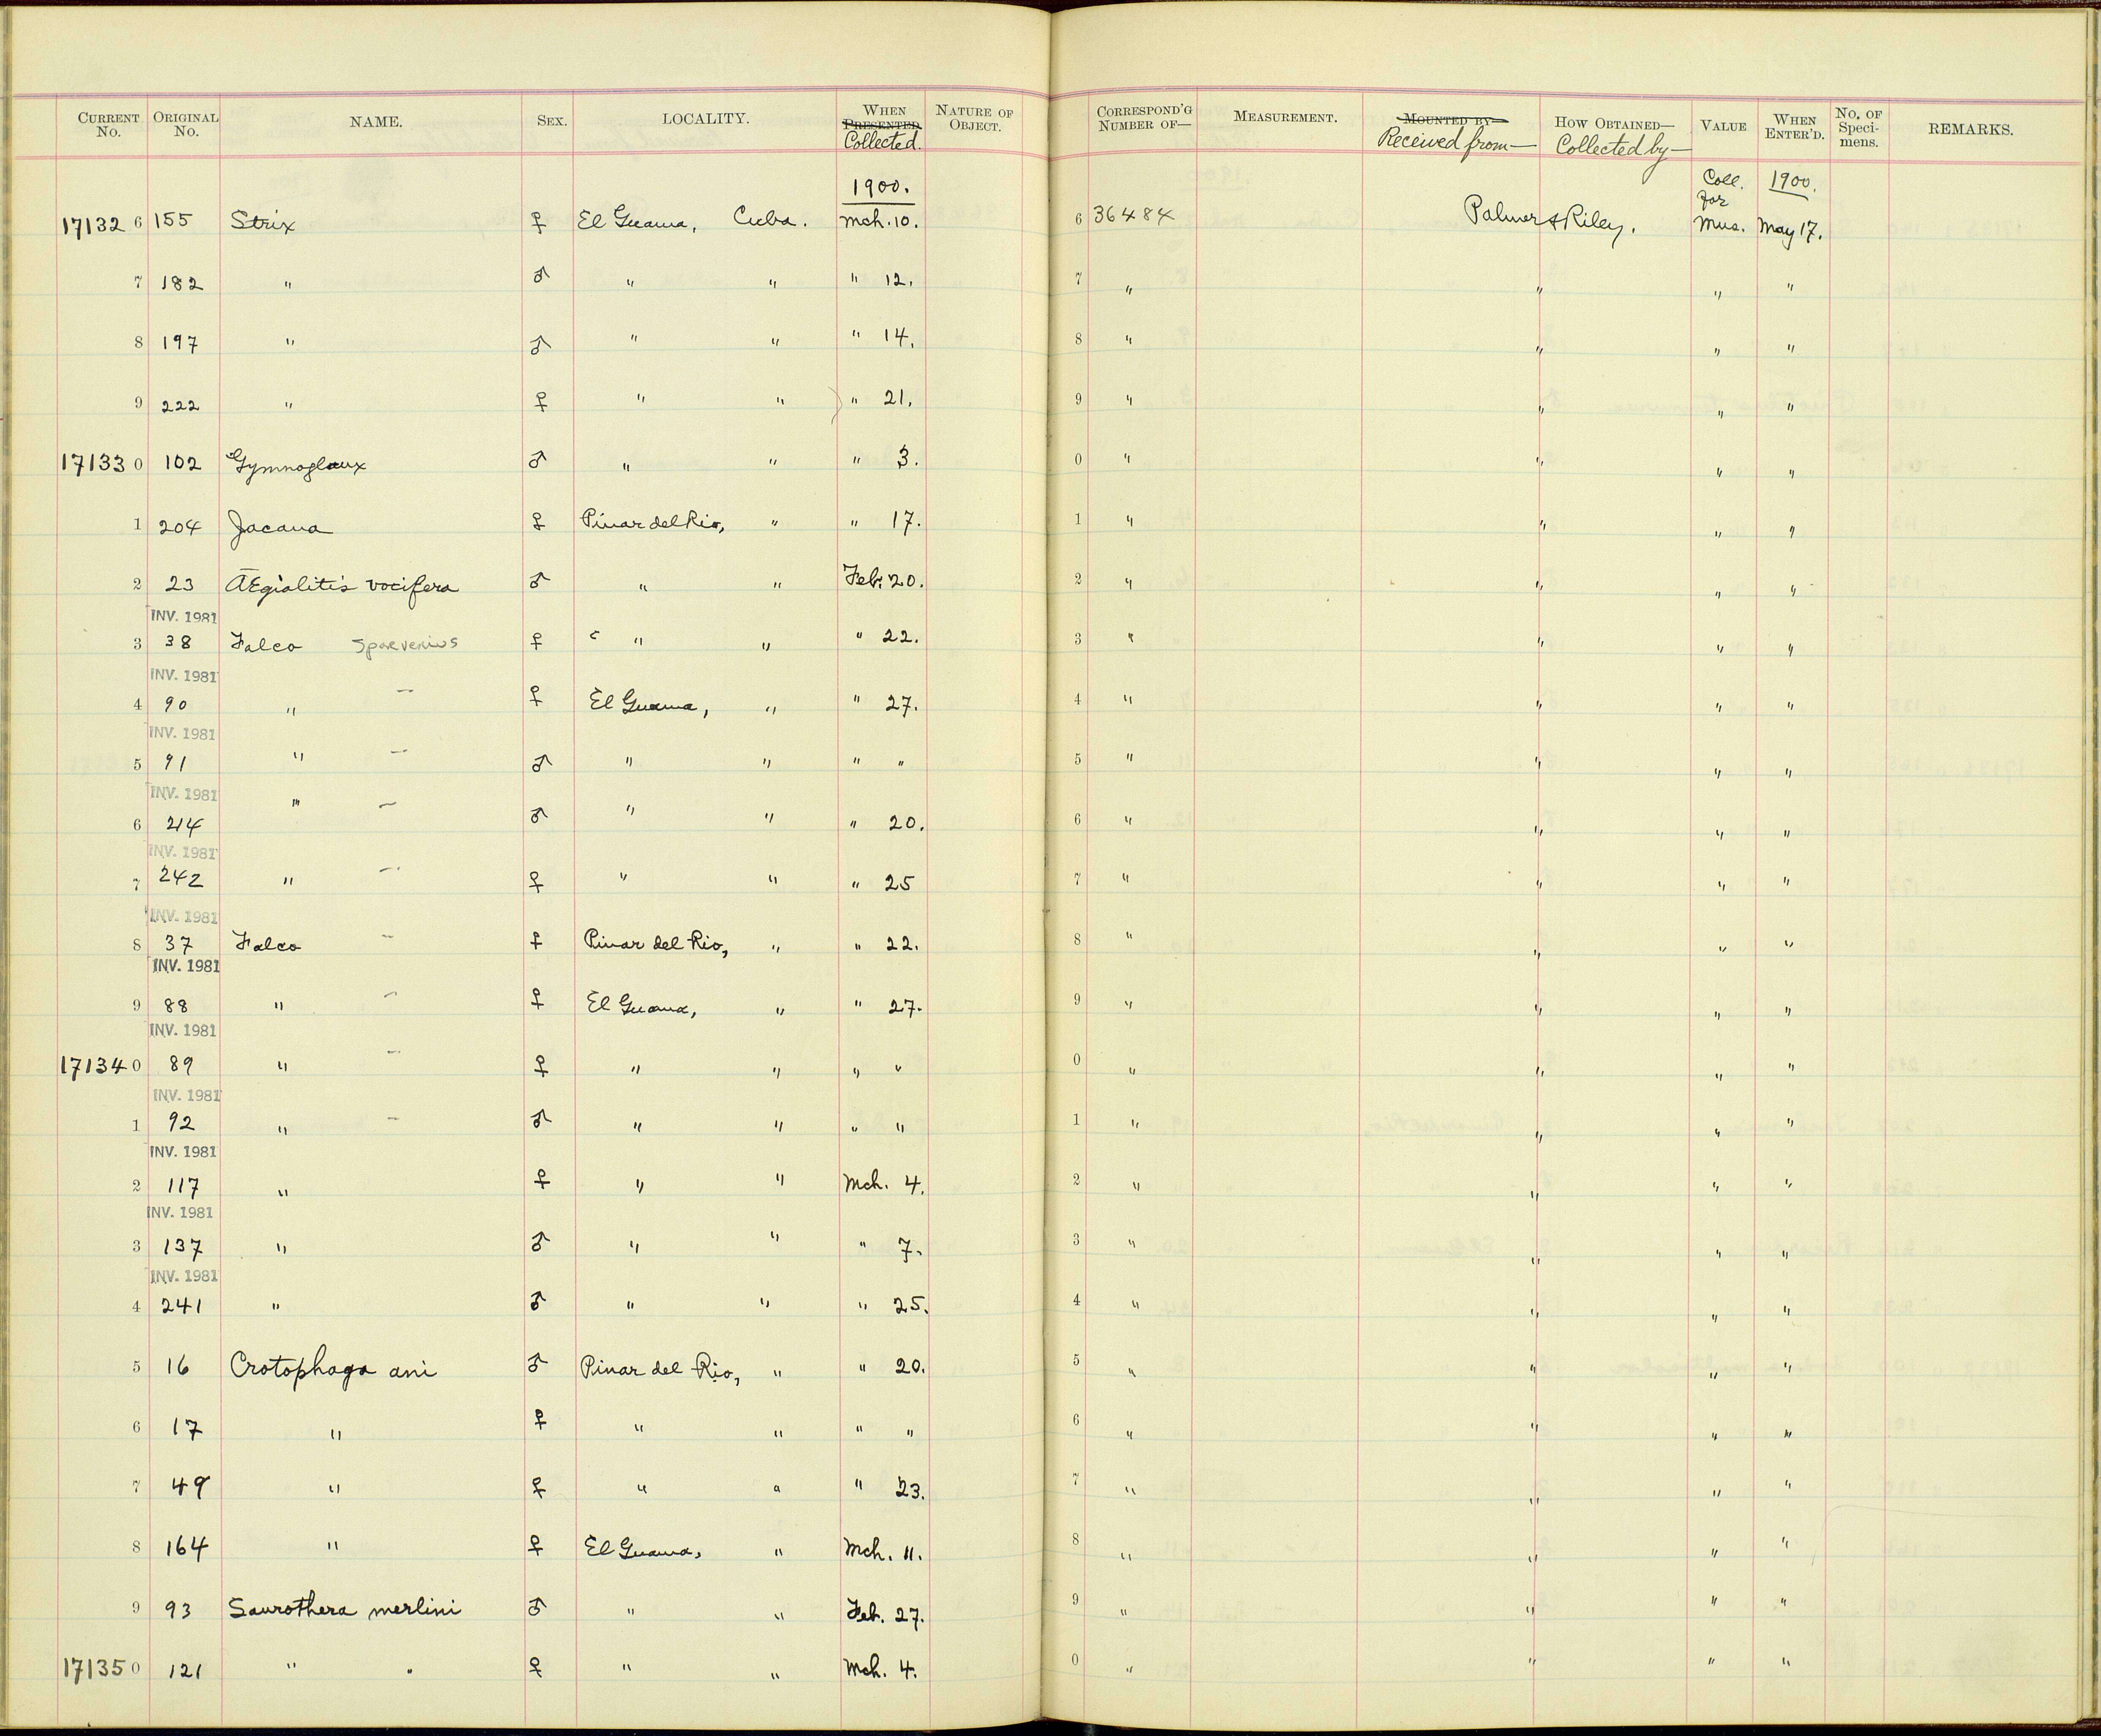 CURRENT No. ORIGINAL No. NAME. SEX. LOCALITY. WHEN PRESENTED Collected. NATURE OF OBJECT. CORRESPOND'G NUMBER OF— MEASUREMENT. MOUNTED BY— Received from— HOW OBTAINED— Collected by— VALUE WHEN ENTER'D. No. OF Speci-mens. REMARKS.
1900. Coll. for 1900.
171326 155 Strix ♀ El Guama, Cuba. Mch. 10. 6 36484 Palmer & Riley. Mus. May 17.
7 182 " ♂ " " " 12. 7 " " " "
8 197 " ♂ " " " 14. 8 " " " "
9 222 " ♀ " " " 21. 9 " " " "
171330 102 Gymnoglaux ♂ " " " 3. 0 " " " "
1 204 Jacana ♀ Pinar del Rio, " " 17. 1 " " " "
2 23 Ægialitis vocifera ♂ " " Feb. 20. 2 " " " "
INV. 1981
3 38 Falco sparverius ♀ " " " 22. 3 " " " "
INV. 1981
4 90 " – ♀ El Guama, " " 27. 4 " " " "
INV. 1981
5 91 " – ♂ " " " " 5 " " " "
INV. 1981
6 214 " – ♂ " " " 20. 6 " " " "
INV. 1981
7 242 " – ♀ " " " 25 7 " " " "
INV. 1981
8 37 Falco – ♀ Pinar del Rio, " " 22. 8 " " " "
INV. 1981
9 88 " – ♀ El Guama, " " 27. 9 " " " "
INV. 1981
171340 89 " – ♀ " " " " 0 " " " "
INV. 1981
1 92 " – ♂ " " " " 1 " " " "
INV. 1981
2 117 " ♀ " " Mch. 4. 2 " " " "
INV. 1981
3 137 " ♂ " " " 7. 3 " " " "
INV. 1981
4 241 " ♂ " " " 25. 4 " " " "
5 16 Crotophaga ani ♂ Pinar del Rio, " " 20. 5 " " " "
6 17 " ♀ " " " " 6 " " " "
7 49 " ♀ " " " 23. 7 " " " "
8 164 " ♀ El Guama, " Mch. 11. 8 " " " "
9 93 Saurothera merlini ♂ " " Feb. 27. 9 " " " "
171350 121 " " ♀ " " Mch. 4. 0 " " " "